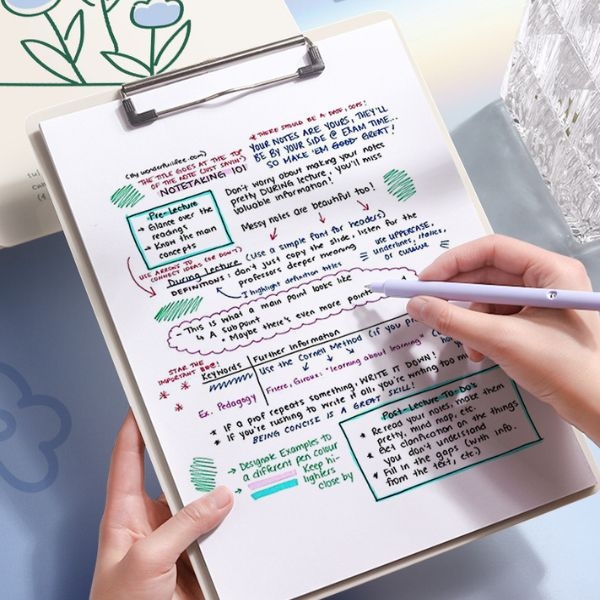 * THERE SHOULD BE A DATE, DOES!
(My wonderfullifee.com)
THE TITLE GOES AT THE TOP
OF THE NOTE (JUST SAYIN!)
NOTETAKING 101
YOUR NOTES ARE YOURS, THEY'LL
BE BY YOUR SIDE @ EXAM TIME...
SO MAKE 'EM GOOD GREAT!
Don't worry about making your notes
pretty DURING lecture, you'll miss
valuable information!
Messy notes are beautiful too!
Pre-Lecture
→ Glance over the
readings
→ Know the main
concepts
USE ARROWS TO
CONNECT IDEAS (OR DON'T)
During Lecture (Use a simple font for headers)
DEFINITIONS: don't just copy the slide, listen for the
professors deeper meaning
I highlight definition titles
use UPPERCASE,
underlines, italics,
or cursive
This is what a main point looks like
↳ A Subpoint
• Maybe there's even more point
STAR THE
IMPORTANT
Keywords
Further Information
Use the Cornell Method (if you pr
Ex. Pedagogy
Friere, Giroux: "learning about learning"
* If a prof repeats something, WRITE IT DOWN!
* If you're rushing to write it all, you're writing too mu
BEING CONCISE IS A GREAT SKILL!
→ Designate Examples to
a different pen colour
Keep hi-
lighters
close by
Post-Lecture To-Do's
* Reread your notes, make them
pretty, mind map, etc.
* Get clarification on the things
you don't understand
* Fill in the gaps (with info.
from the text, etc.)